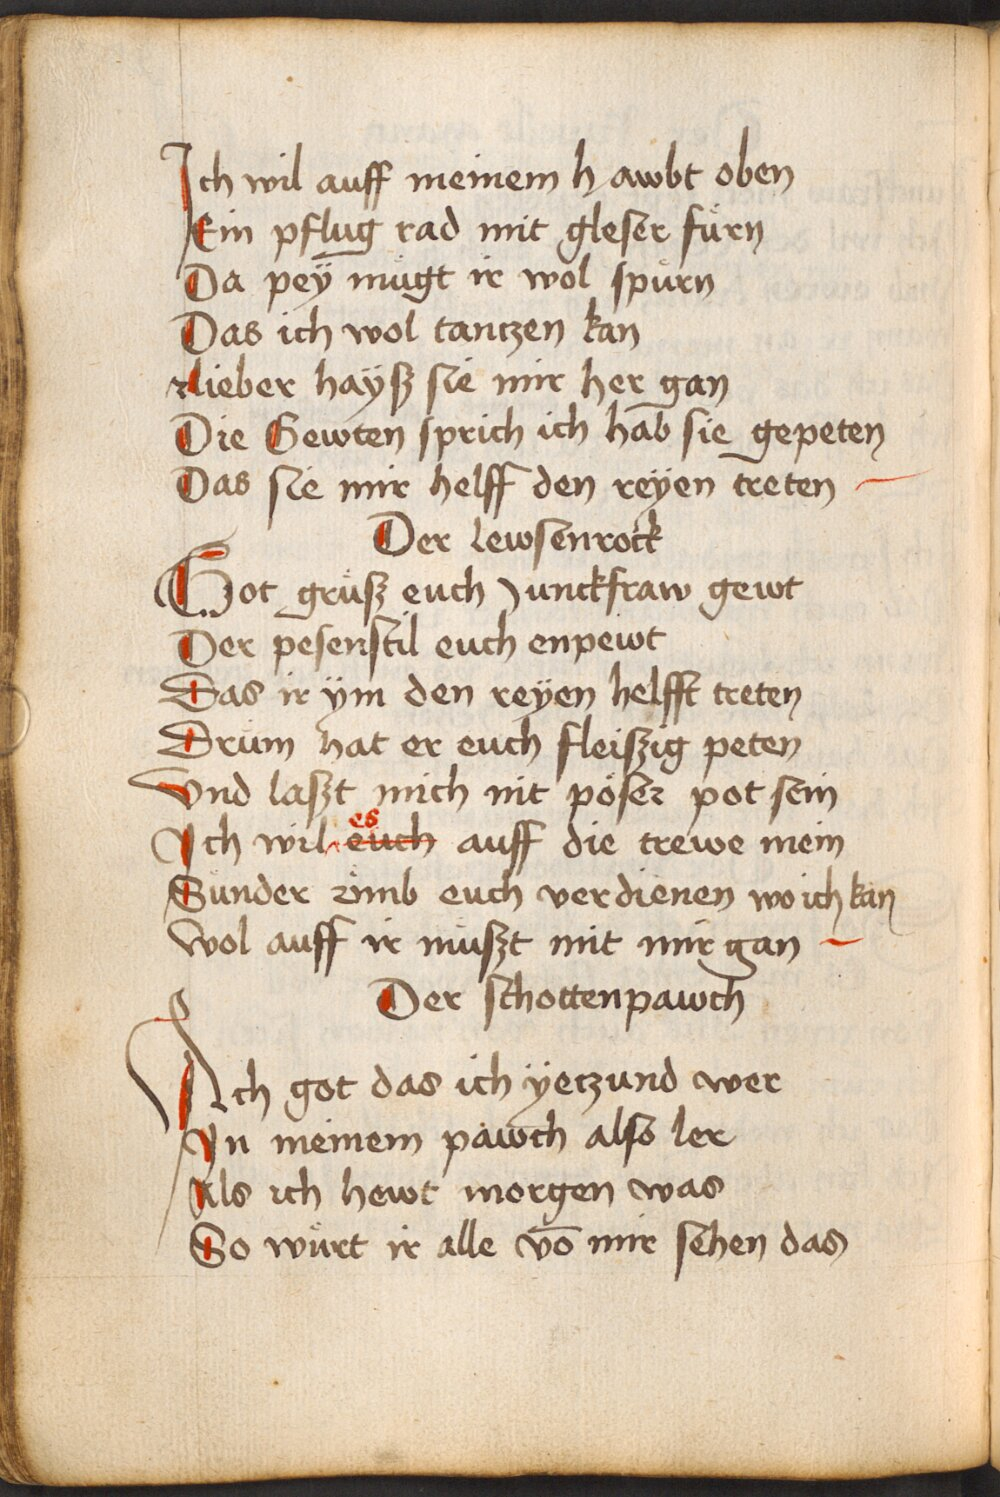 Ich wil auff meinem hawbt oben
Ein pflug rad mit gleser fürn
Da peÿ mügt ir wol spürn
Das ich wol tanczen kan
lieber haÿß sie mir her gan
Die Gewten sprich ich hab sie gepeten
Das sie mir helff den reÿen treten
Der lewsenrock
Got grüß euch Junckfraw gewt
Der pesenstil euch enpewt
Das ir ÿm den reÿen helfft treten
Drum hat er euch fleißig peten
Vnd laßt mich nit pöser pot sein
Ich wil es euch auff die trewe mein
Sunder umb euch verdienen wo ich kan
Wol auff ir müßt mit mir gan
Der schottenpawch
Ach got das ich ÿeczund wer
In meinem pawch also ler
Als ich hewt morgen was
So würt ir alle vō mir sehen das